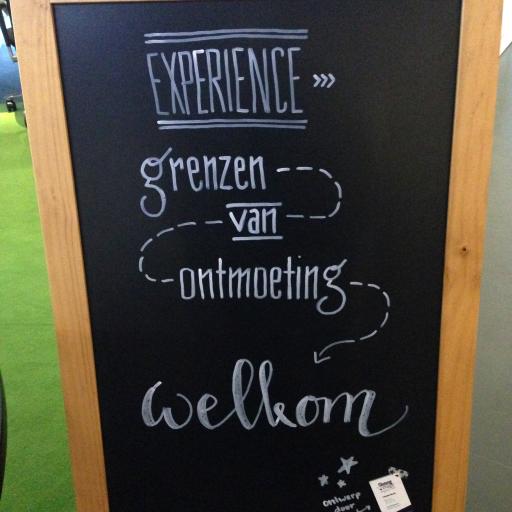 EXPERIENCE »»
grenzen
van
ontmoeting
welkom
ontwerp
door